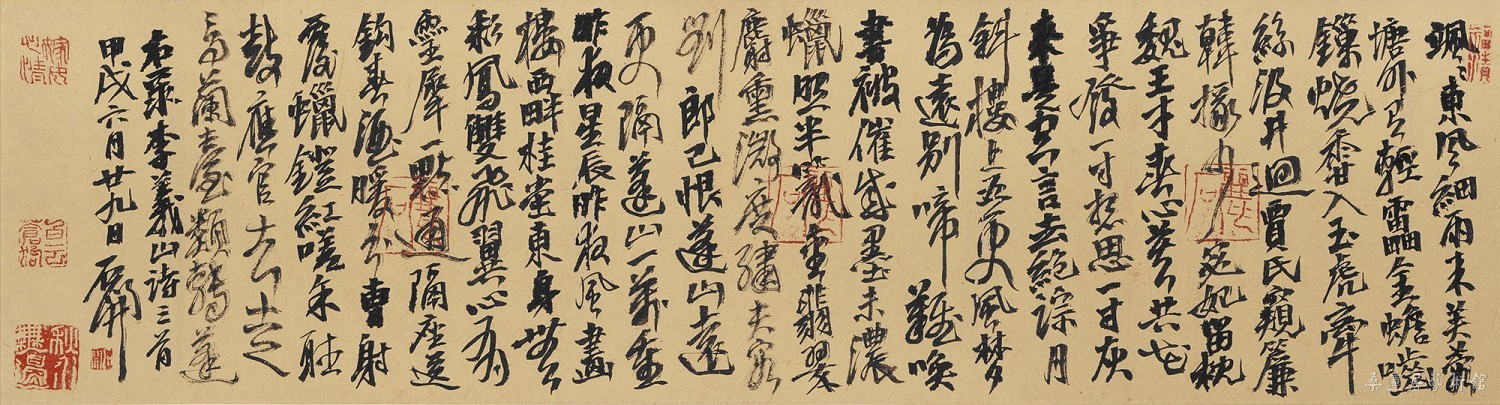 颯〻東風細雨來芙蓉
塘外有輕雷金蟾嚙
鏁燒香入玉虎牽
絲汲井回賈氏窺簾
韓掾少宓妃留枕
魏王才春心莫共花
爭發一寸相思一寸灰
來是空言去絕踪月
斜樓上五更風夢
為遠別啼難喚
書被催成墨未濃
蠟照半籠金翡翠
麝熏微度繡芙蓉
劉郎已恨蓬山遠
更隔蓬山一萬重
昨夜星辰昨夜風畫
樓西畔桂堂東身無
彩鳳雙飛翼心有
靈犀一點通隔座送
鉤春酒暖分曹射
覆蠟鐙紅嗟余聽
鼓應官去走
馬蘭臺類轉蓬
右錄李義山詩三首
甲戌六月廿九日 石開
桑蓮居藝術館